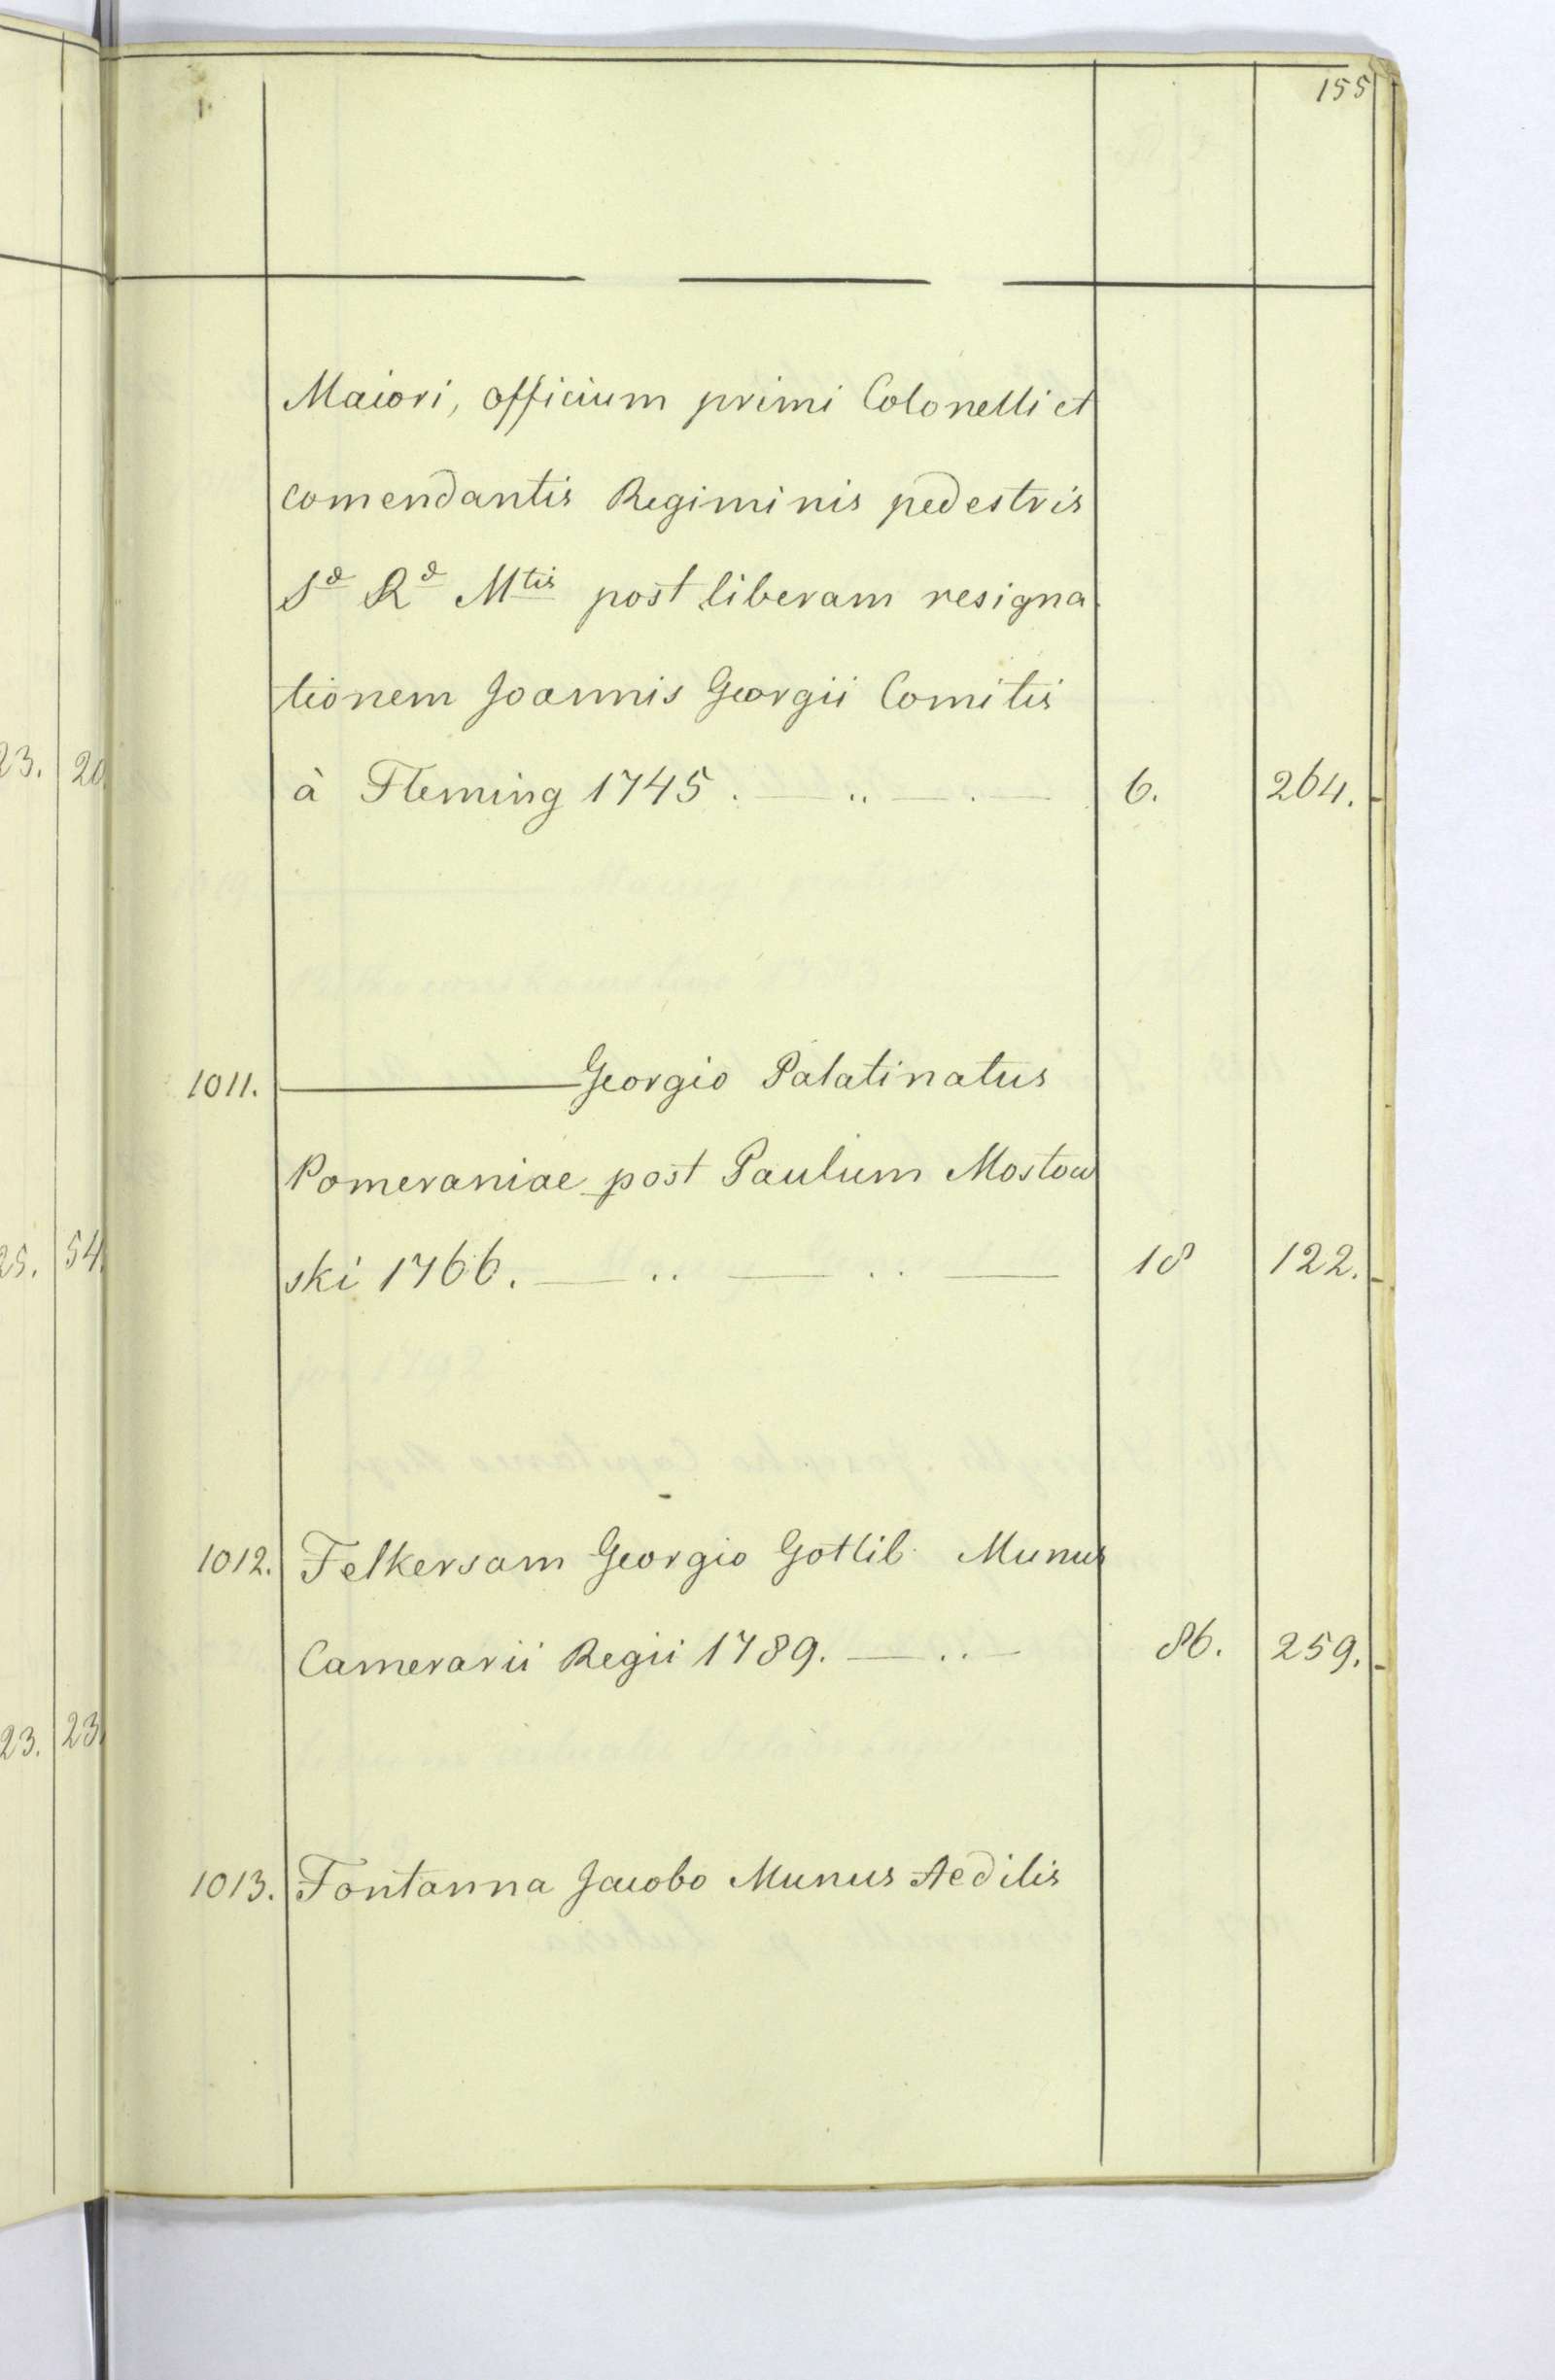 155
Maiori, officium primi Colonelli et
comendantis Regiminis pedestris
Sæ Ræ Mtis post liberam resigna
tionem Joannis Georgii Comitis
23. 20.
à Fleming 1745. — .. — . — 6. 264.
1011. ——— Georgio Palatinatus
Pomeraniae post Paulum Mostow
25. 54.
ski 1766. — .. — .. — 18 122.
1012. Felkersam Georgio Gotlib Munus
Camerarii Regii 1789. — .. — 86. 259.
23. 23.
1013. Fontanna Jacobo Munus Aedilis